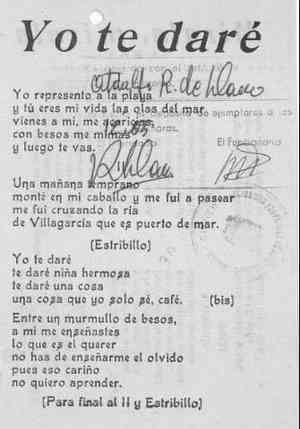 Yo te daré
Yo represento a la playa
y tú eres mi vida las olas del mar
vienes a mi, me acaricias,
con besos me mimas
y luego te vas.
ejemplares a las
horas.
El Funcionario
Una mañana temprano
monté en mi caballo y me fuí a pasear
me fuí cruzando la ría
de Villagarcía que es puerto de mar.
(Estribillo)
Yo te daré
te daré niña hermosa
te daré una cosa
una cosa que yo solo sé, café. (bis)
Entre un murmullo de besos,
a mi me enseñastes
lo que es el querer
no has de enseñarme el olvido
pues eso cariño
no quiero aprender.
(Para final al II y Estribillo)